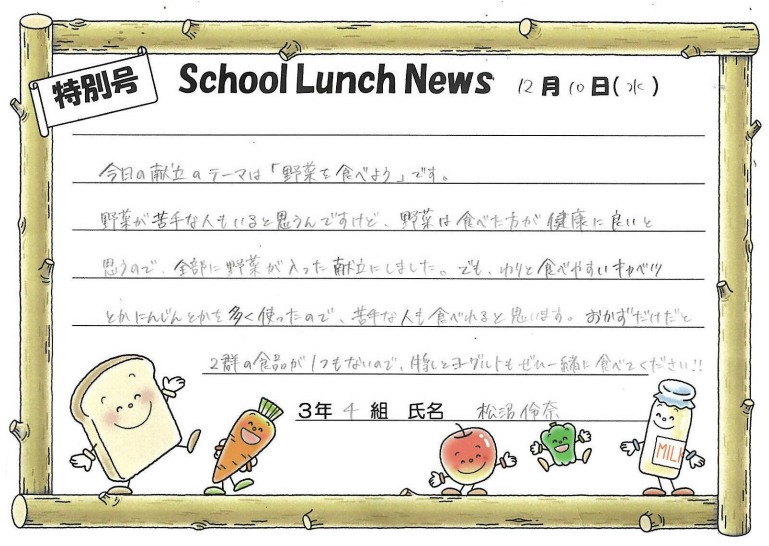 特別号 School Lunch News 12月10日(水)
今日の献立のテーマは「野菜を食べよう」です。
野菜が苦手な人もいると思うんですけど、野菜は食べた方が健康に良いと
思うので、全部に野菜が入った献立にしました。でも、わりと食べやすいキャベツ
とかにんじんとかを多く使ったので、苦手な人も食べれると思います。おかずだけだと
2群の食品が1つもないので、牛乳とヨーグルトもぜひ一緒に食べてください!!
3年 4 組 氏名 松沼伶奈
MILK